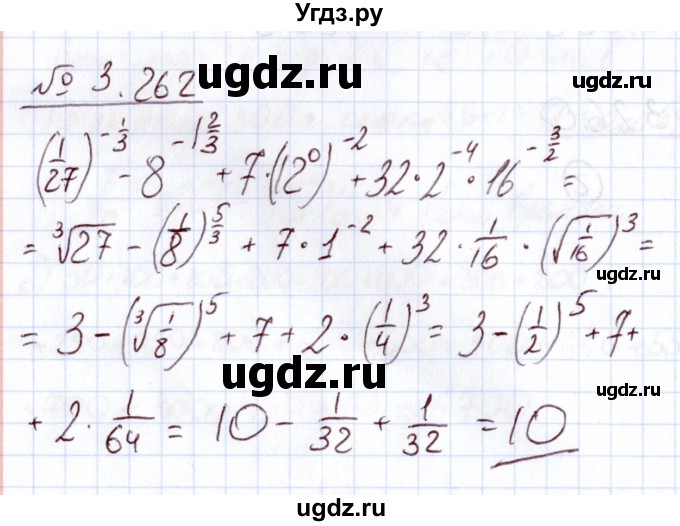 Угдз.ру
№ 3.262
ugdz.ru
(1/27)^(-1/3) - 8^(-1 2/3) + 7·(12^0)^(-2) + 32·2^(-4)·16^(-3/2) =
ugdz.ru
= ∛27 - (1/8)^(5/3) + 7·1^(-2) + 32·1/16·(√(1/16))^3 =
ugdz.ru
ugdz.ru
= 3 - (∛(1/8))^5 + 7 + 2·(1/4)^3 = 3 - (1/2)^5 + 7 +
ugdz.ru
ugdz.ru
+ 2·1/64 = 10 - 1/32 + 1/32 = 10
ugdz.ru